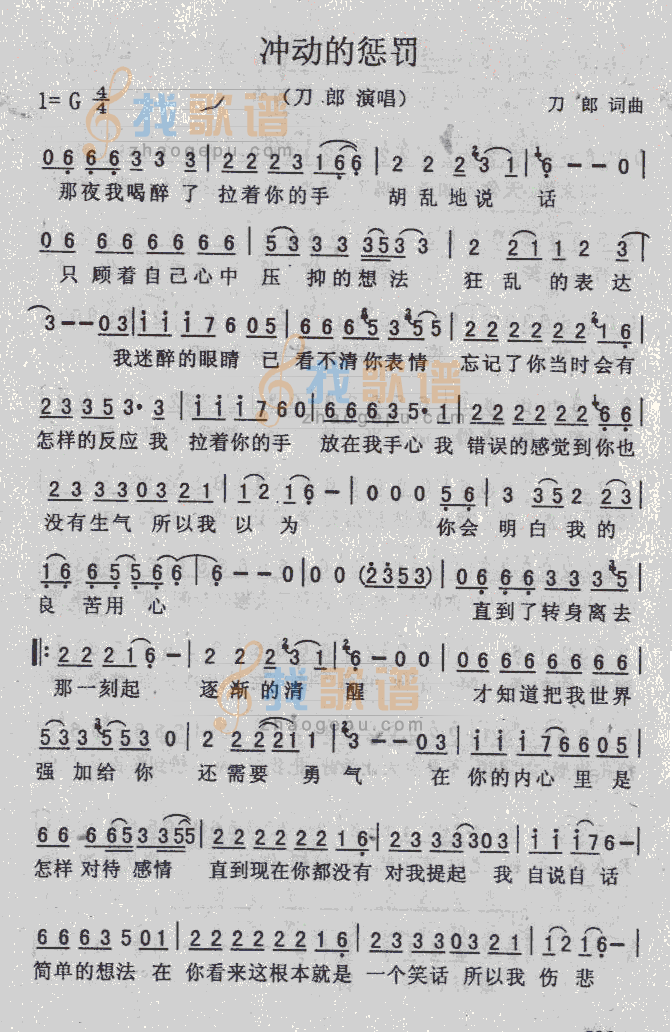 冲动的惩罚
1= G 4/4 (刀 郎 演唱) 刀 郎 词曲
找歌谱
zhaogepu.com
0 6 6 6 3 3 3 | 2 2 2 3 1 6 6 | 2 2 2 2 3 1 | 1 6 - - 0 |
那夜我喝醉了 拉着你的手 胡乱地说 话
0 6 6 6 6 6 6 6 | 5 3 3 3 3 3 5 3 3 | 2 2 1 1 2 3 |
只顾着自己心中 压抑的想法 狂乱的表达
3 - - 0 3 | i i i 7 6 0 5 | 6 6 6 5 3 3 5 5 | 2 2 2 2 2 2 1 6 |
我迷醉的眼睛 已 看不清你表情 忘记了你当时会有
找歌谱
zhaogepu.com
2 3 3 5 3· 3 | i i i 7 6 0 | 6 6 6 3 5· 1 | 2 2 2 2 2 2 6 6 |
怎样的反应 我 拉着你的手 放在我手心 我 错误的感觉到你也
2 3 3 3 0 3 2 1 | 1 2 1 6 - | 0 0 0 5 6 | 3 3 5 2 2 3 |
没有生气 所以我 以 为 你会 明白我的
1 6 6 5 5 6 6 | 6 - - 0 | 0 0 (2 3 5 3) | 0 6 6 6 3 3 3 5 |
良 苦用 心 直到了转身离去
‖: 2 2 2 1 6 - | 2 2 2 2 3 1 | 2 6 - 0 0 | 0 6 6 6 6 6 6 6 |
那一刻起 逐渐的清 醒 才知道把我世界
找歌谱
zhaogepu.com
5 3 3 5 5 3 0 | 2 2 2 2 1 1 1 | 3 - - 0 3 | i i i 7 6 6 0 5 |
强加给你 还需要 勇气 在 你的内心里是
6 6 6 6 5 3 3 5 5 | 2 2 2 2 2 2 1 6 | 2 3 3 3 3 0 3 | i i i 7 6 - |
怎样 对待 感情 直到现在你都没有 对我提起 我 自说自话
6 6 6 3 5 0 1 | 2 2 2 2 2 2 1 6 | 2 3 3 3 0 3 2 1 | 1 2 1 6 - |
简单的想法 在 你看来这根本就是 一个笑话 所以我 伤 悲